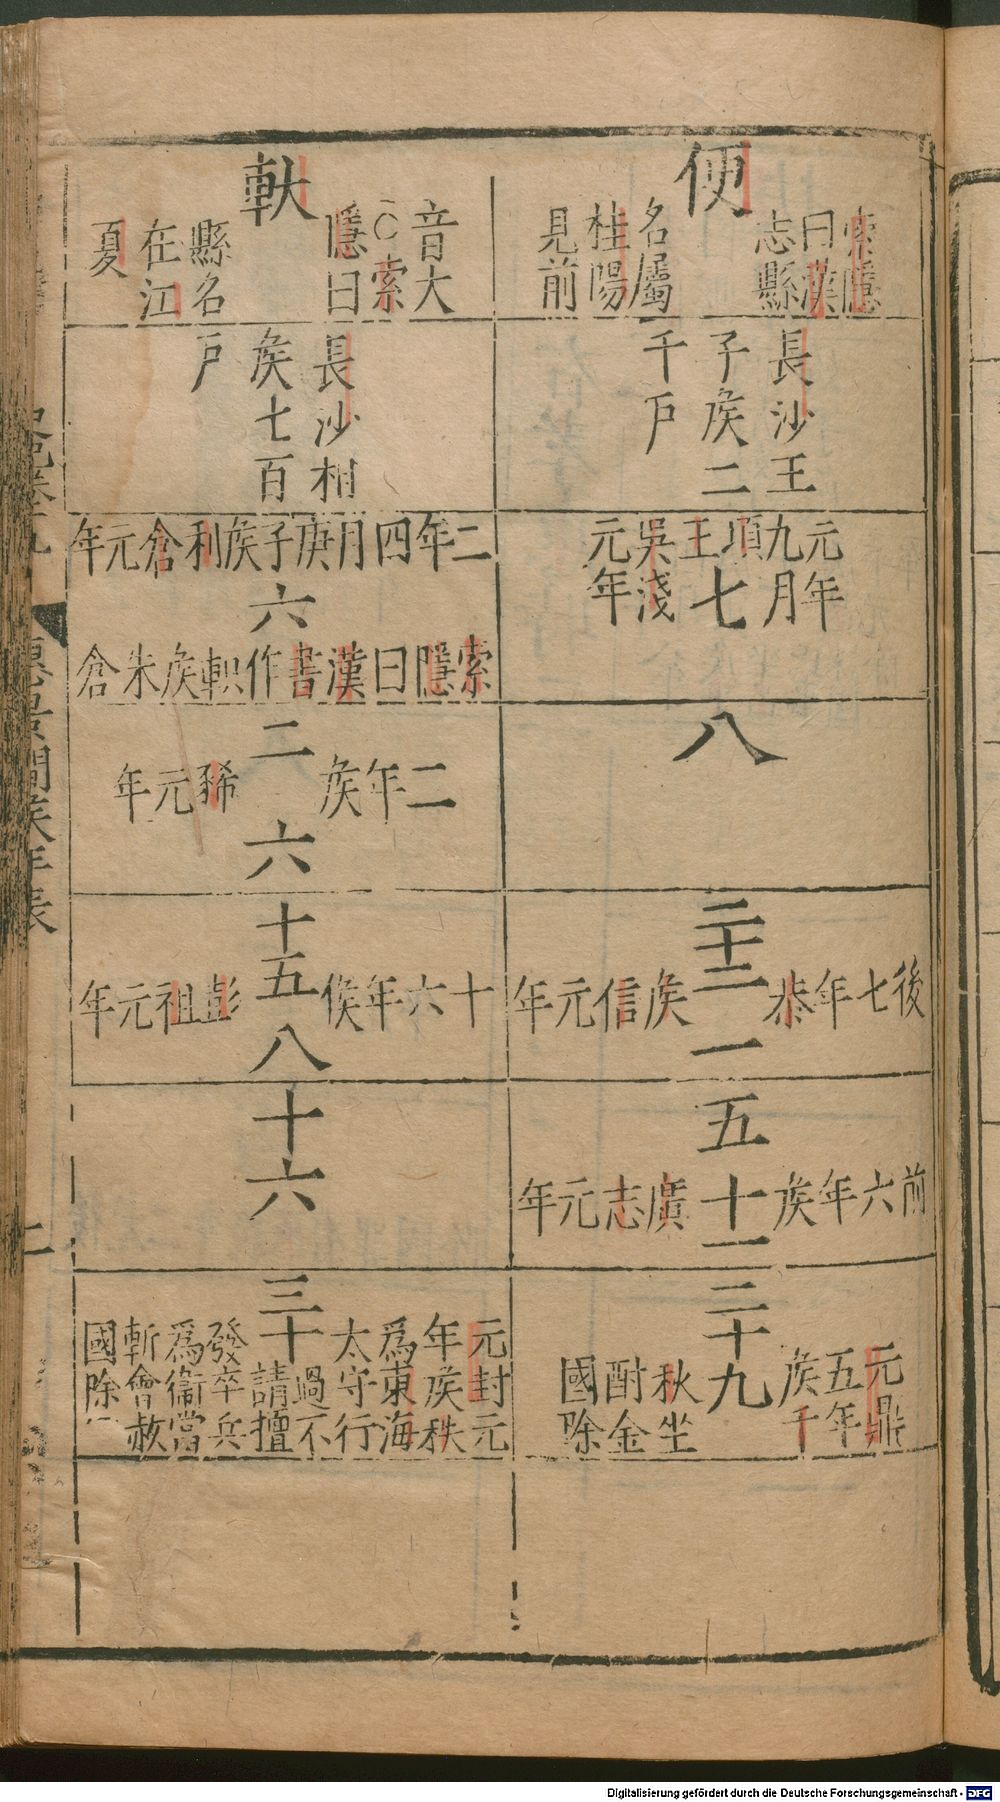 便
索隱
曰漢
志縣
名屬
桂陽
見前
長沙王
子侯二
千戶
元年
九月
項王
七
吳淺
元年
八
二十二
後七年恭
侯信元年
一
五
前六年侯
廣志元年
十一
二十九
元鼎
五年
侯千
秋坐
酎金
國除
軑
音大
〇索
隱曰
縣名
在江
夏
長沙相
侯七百
戶
二年四月庚子侯利倉元年
六
索隱曰漢書作軑侯朱倉
二
二年侯
豨元年
六
十五
十六年侯
彭祖元年
八
十六
三十
元封元
年侯秩
爲東海
太守行
過不
請擅
發卒兵
爲衞當
斬會赦
國除
惠景間侯年表
二
Digitalisierung gefördert durch die Deutsche Forschungsgemeinschaft - DFG